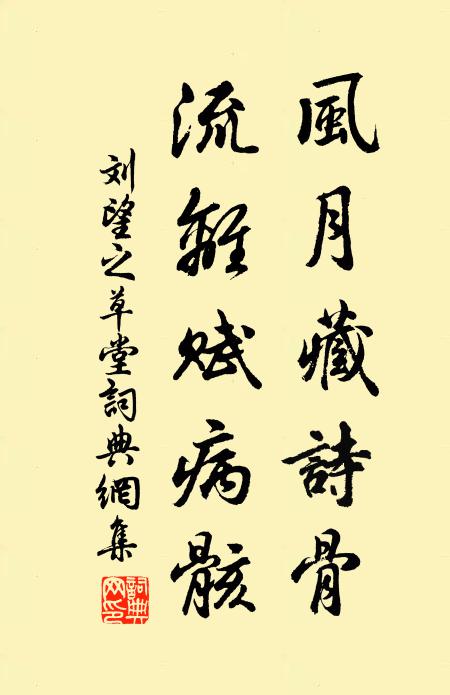 風月藏詩骨
流離赋病骸
刘望之草堂詞典網集
詞典网印